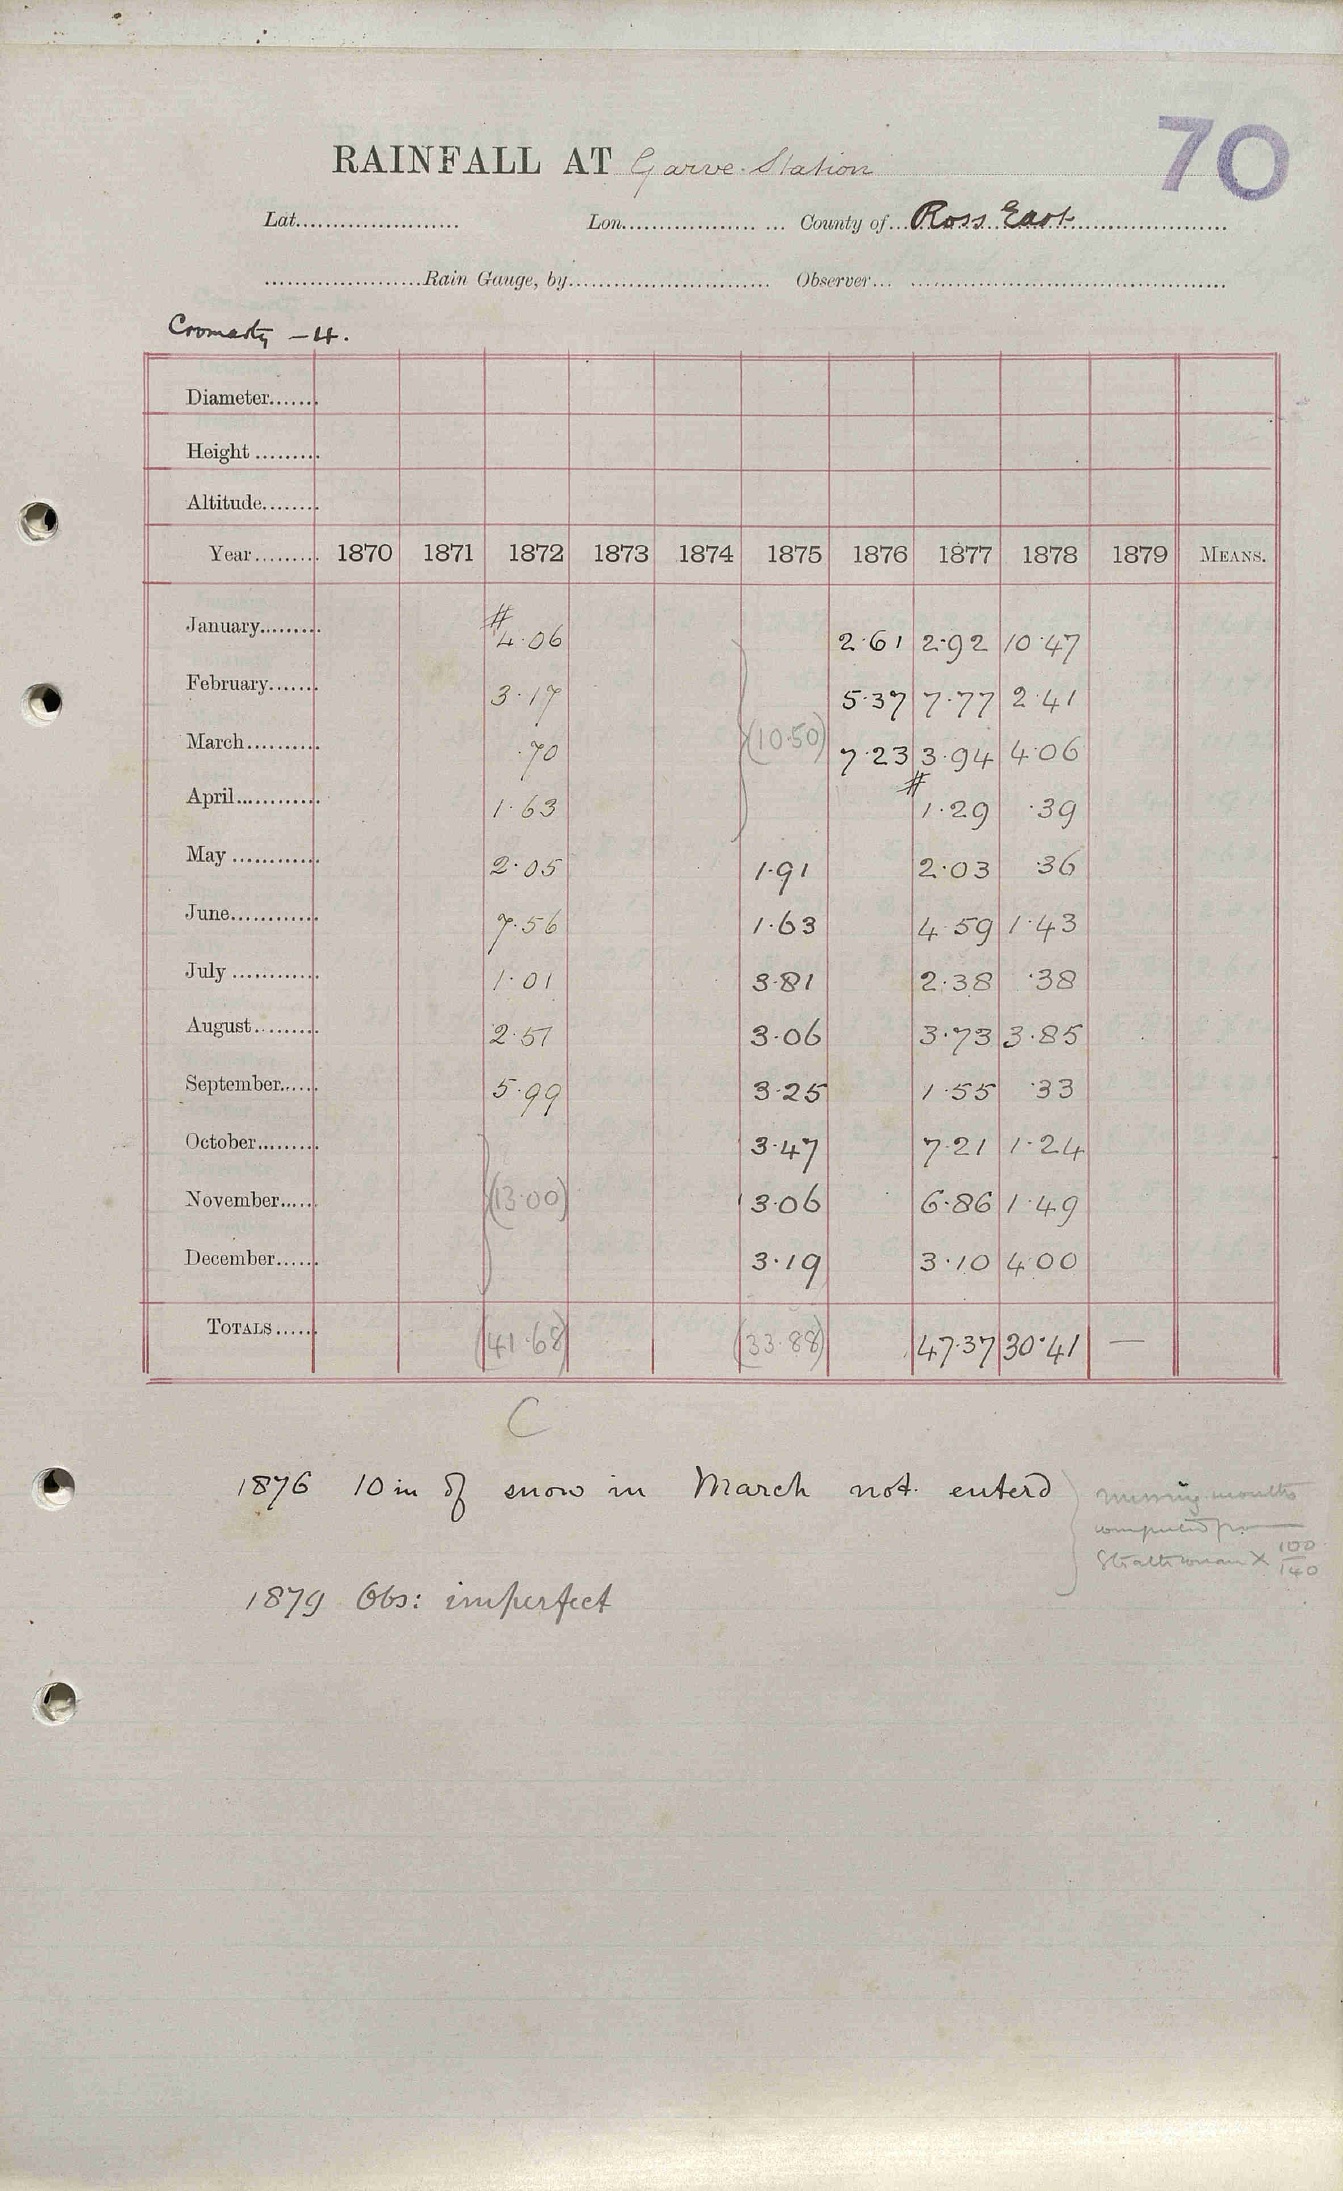 70
RAINFALL AT Garve Station
Lat...................... Lon.................. ... County of...Ross East
.....................Rain Gauge, by........................... Observer...
Cromarty - 4.
Diameter.......
Height.........
Altitude........
Year......... 1870 1871 1872 1873 1874 1875 1876 1877 1878 1879 MEANS.
January......... # 4.06 2.61 2.92 10.47
February....... 3.17 5.37 7.77 2.41
March.......... .70 (10.50) 7.23 3.94 4.06
April............ 1.63 # 1.29 .39
May ............ 2.05 1.91 2.03 .36
June............ 7.56 1.63 4.59 1.43
July ............ 1.01 3.81 2.38 .38
August......... 2.51 3.06 3.73 3.85
September...... 5.99 3.25 1.55 .33
October......... 3.47 7.21 1.24
November...... (13.00) 3.06 6.86 1.49
December...... 3.19 3.10 4.00
TOTALS...... (41.68) (33.88) 47.37 30.41 —
C
1876 10 in of snow in March not enterd
missing months
computed from
Strathconan × 100/140
1879 Obs: imperfect